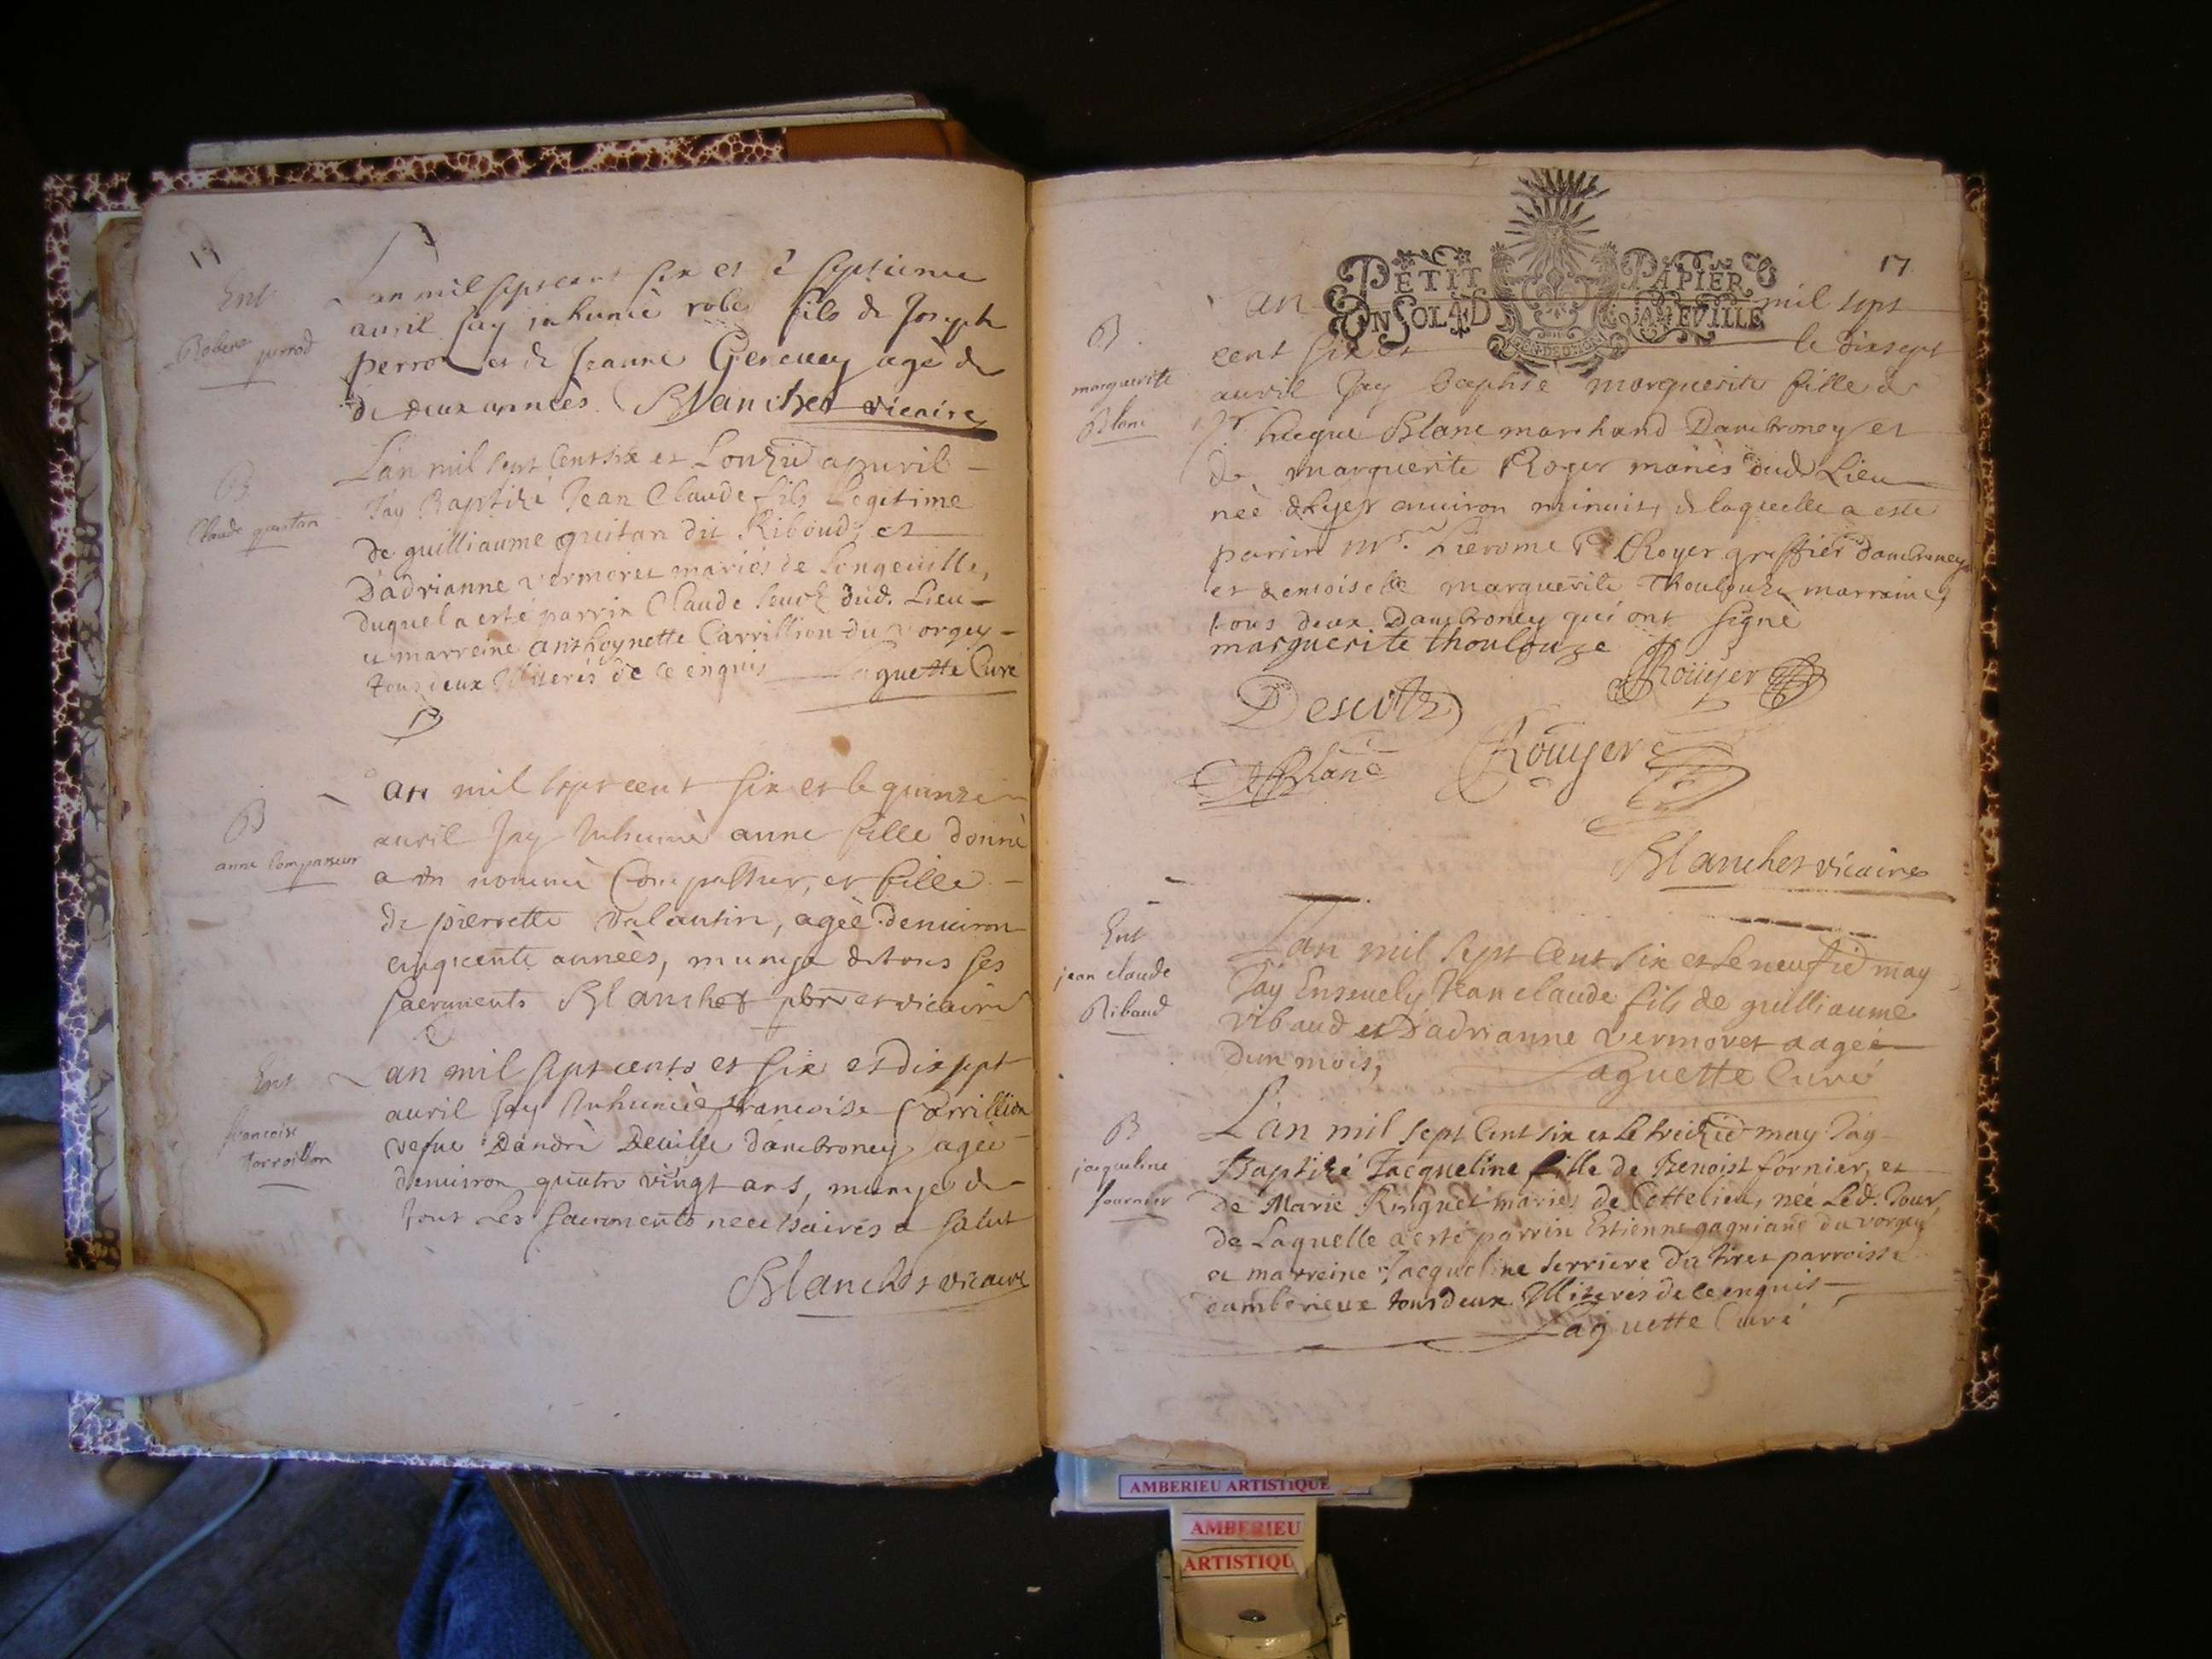 Ent
Robert perrod
Lan mil sept cent six et é septieme
auril Jay inhumé robe fils de Joseph
perrod et de Jeanne Gerenuey agè de
de deux annèes. Blanchet vicaire
B
Claude guitan
Lán mil sept Cent six et Lonziē apuril
Jáy Baptizé Jean Claude fils Legitime
de guilliaume guitan dit Riboud, et
Dádrianne vermoret mariés de Longeuille,
duquel a esté parrin Claude dud. Lieu
et marreine anthoynette Carrillion du vorgey
tous deux Illiterés de ce enquis Laguette Curé
B
anne Compasseur
an mil sept cent six et le quinze
auril Jay Inhumè anne fille donnè
a un nommè Compasseur, et fille
de pierrette Valantin, agèe denuiron
cinquente annèes, munye de tous ses
sacrements Blanchet pbre et vicaire
Ent
francoise
Carrillion
an mil sept cents et six et dix sept
auril Jay Inhumèe francoise Carrillion
vefue Dandrè Deuille dambroney agèe
denuiron quatre vingt ans, munye de
tout Les sacrements necessaires a salut
Blanchet vicaire
17
PETIT PAPIER
ON SOL 4 D LA FEVILLE
B
marguerite
Blanc
an mil sept
cent six et le dixsept
auril Jay baptisè marguerite fille de
Sr hugue Blanc marchand Dambroney et
de marguerite Royer mariès dud. Lieu
nèe dhyer enuiron minuit, de laquelle a estè
parrin mr. hierome Royer greffier dambroney
et demoiselle marguerite Thoulouze marraine,
tous deux Dambroney qui ont signè
marguerite thoulouze Roüyer
Descotz
Blanc Roüyer
Blanchet vicaire
Ent
jean claude
Ribaud
Lan mil sept Cent six et le neufiē may
Jáy Enseuely Jean claude fils de guilliaume
ribaud et Dadrianne vermoret aagée
Dun mois, Laguette Curé
B
jacqueline
fournier
Lán mil sept Cent six et le treiziē may Jáy
Baptizé Jacqueline fille de Benoist fornier, et
De Marie Ringuet mariés de Cottelieu, née Led. Jour,
de Laquelle a esté parrin Estienne gagniane du vorgey
et marreine Jacqueline serriere du tiret parroisse
damberieux tous deux Illiterés de ce enquis
Laguette Curé
AMBERIEU ARTISTIQUE
AMBERIEU
ARTISTIQU